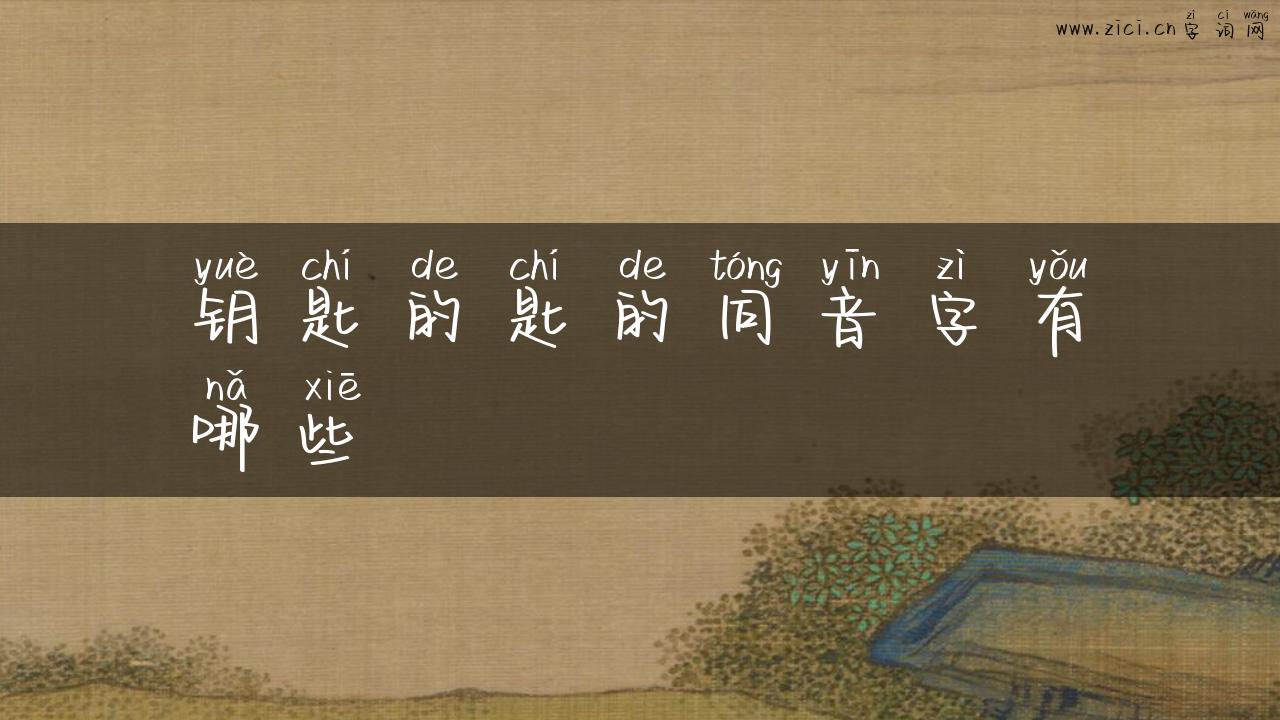 zì cí wǎng
www.zici.cn 字词网
yuè chí de chí de tóng yīn zì yǒu
钥匙的匙的同音字有
nǎ xiē
哪些